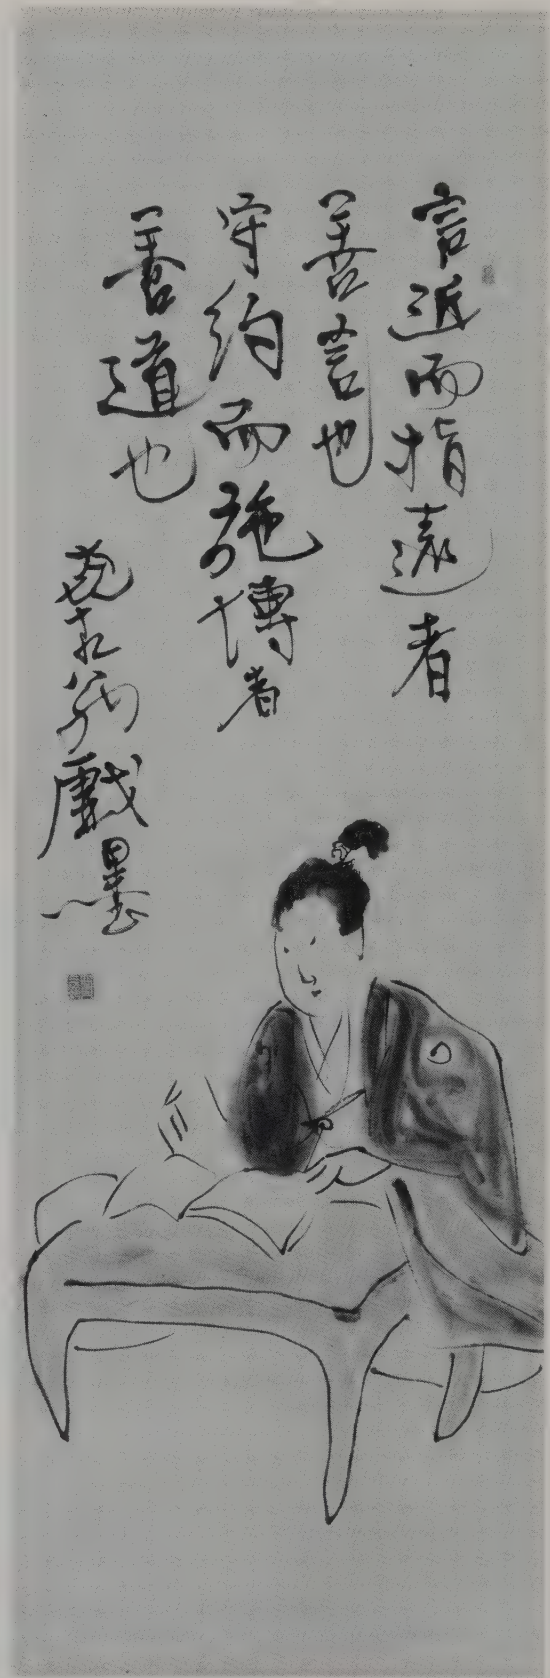 言近而指遠者
善言也
守約而施博者
善道也
翁戯墨